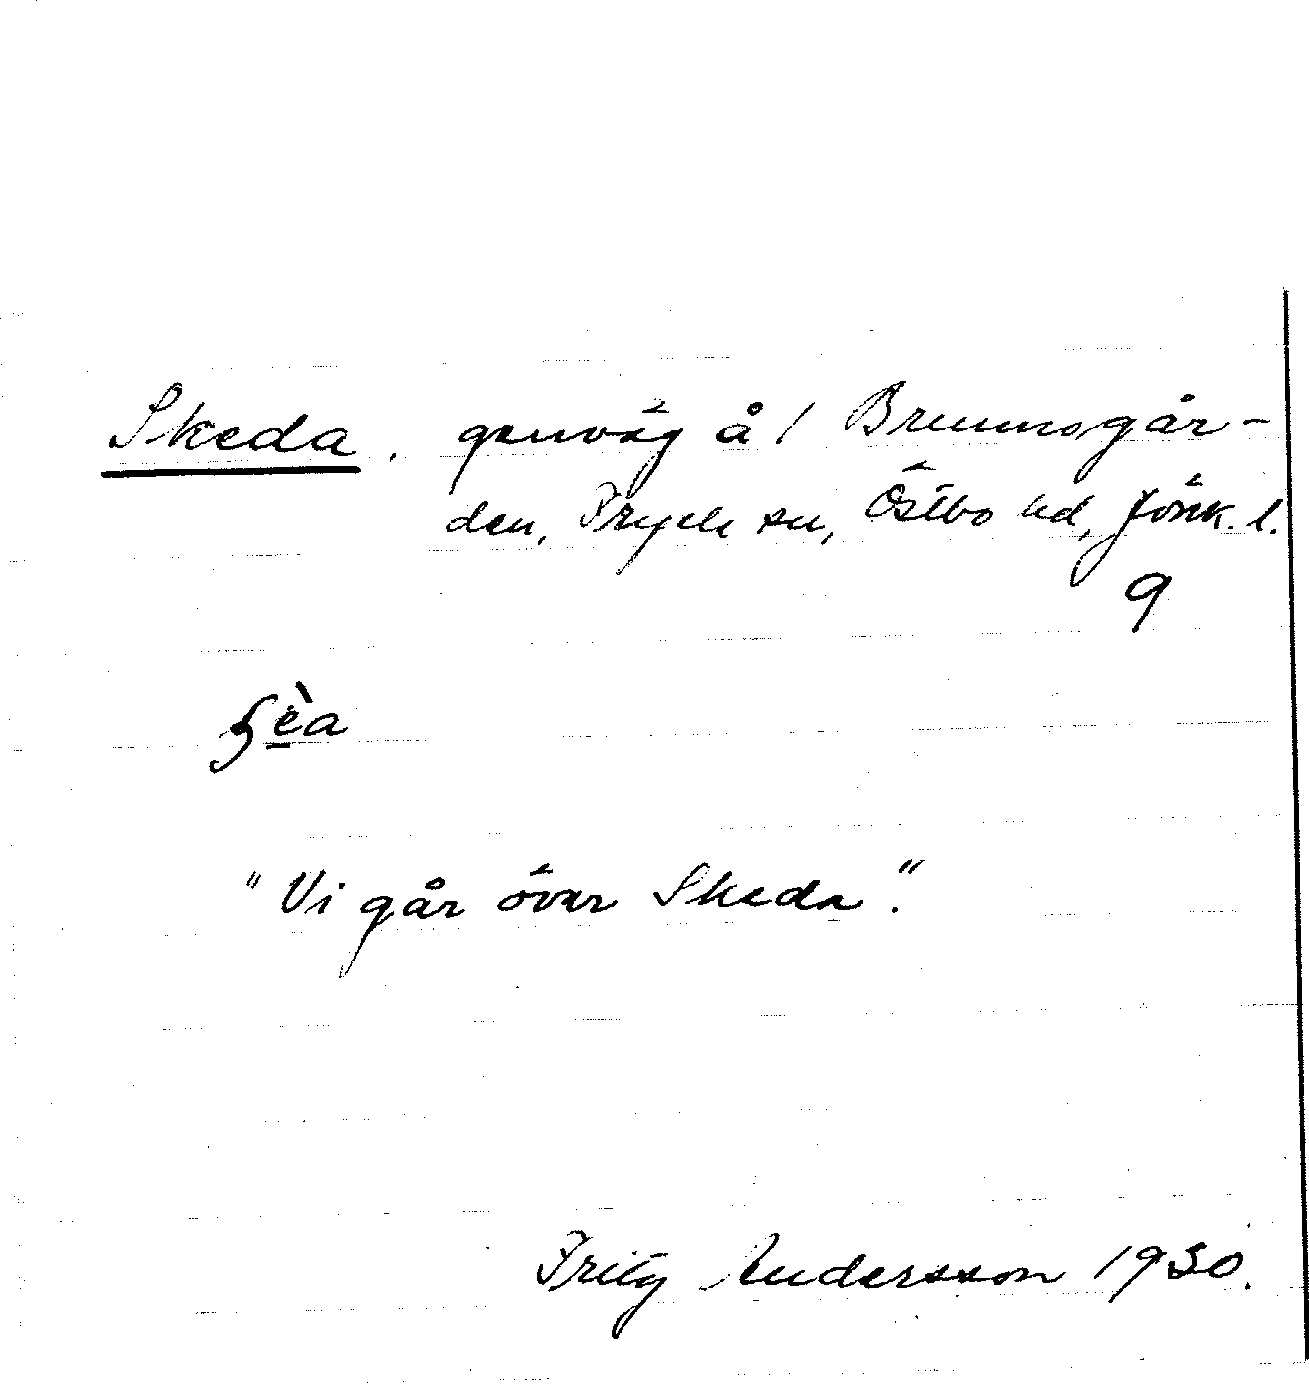 Skeda, genväg å 1 Brunnsgår-
den, Fryele sn, Östbo hd, Jönk. l.
9
ɧèa
"Vi går över Skeda."
Fritz Andersson 1930.